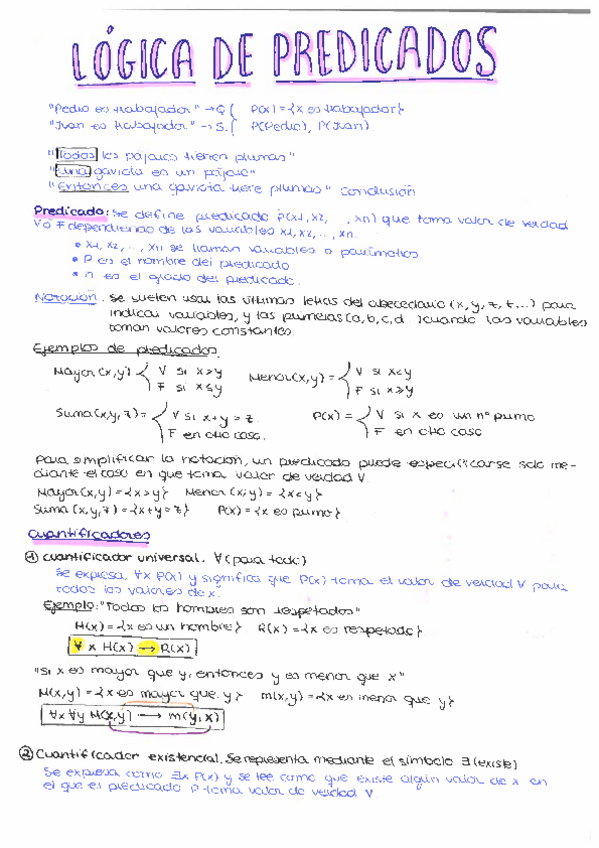 LÓGICA DE PREDICADOS
"Pedro es trabajador" → Q { P(x) = {x es trabajador}
"Juan es trabajador" → S. { P(Pedro), P(Juan)
"Todos los pájaros tienen plumas"
"Una gaviota es un pájaro"
"Entonces una gaviota tiene plumas" conclusión
Predicado: Se define predicado P(x1, x2, ..., xn) que toma valor de verdad
V o F dependiendo de las variables x1, x2, ..., xn.
• x1, x2, ..., xn se llaman variables o parámetros
• P es el nombre del predicado
• n es el grado del predicado.
Notación. Se suelen usar las últimas letras del abecedario (x, y, z, t...) para
indicar variables, y las primeras (a, b, c, d ) cuando las variables
toman valores constantes.
Ejemplos de predicados.
Mayor(x,y) { V si x>y Menor(x,y) = { V si x<y
F si x≤y F si x≥y
Suma(x,y,z) = { V si x+y=z. P(x) = { V si x es un nº primo
F en otro caso. F en otro caso
Para simplificar la notación, un predicado puede especificarse solo me-
diante el caso en que toma valor de verdad V.
Mayor(x,y) = {x>y} Menor(x,y) = {x<y}
Suma(x,y,z) = {x+y=z} P(x) = {x es primo}
Cuantificadores
① Cuantificador universal. ∀ (para todo)
Se expresa, ∀x P(x) y significa que P(x) toma el valor de verdad V para
todos los valores de x.
Ejemplo: "Todos los hombres son respetados"
H(x) = {x es un hombre} R(x) = {x es respetado}
∀x H(x) → R(x)
"Si x es mayor que y, entonces y es menor que x"
M(x,y) = {x es mayor que y} m(x,y) = {x es menor que y}
∀x ∀y M(x,y) → m(y,x)
② Cuantificador existencial. Se representa mediante el símbolo ∃ (existe)
Se expresa como ∃x P(x) y se lee como que existe algún valor de x en
el que es predicado P toma valor de verdad V.